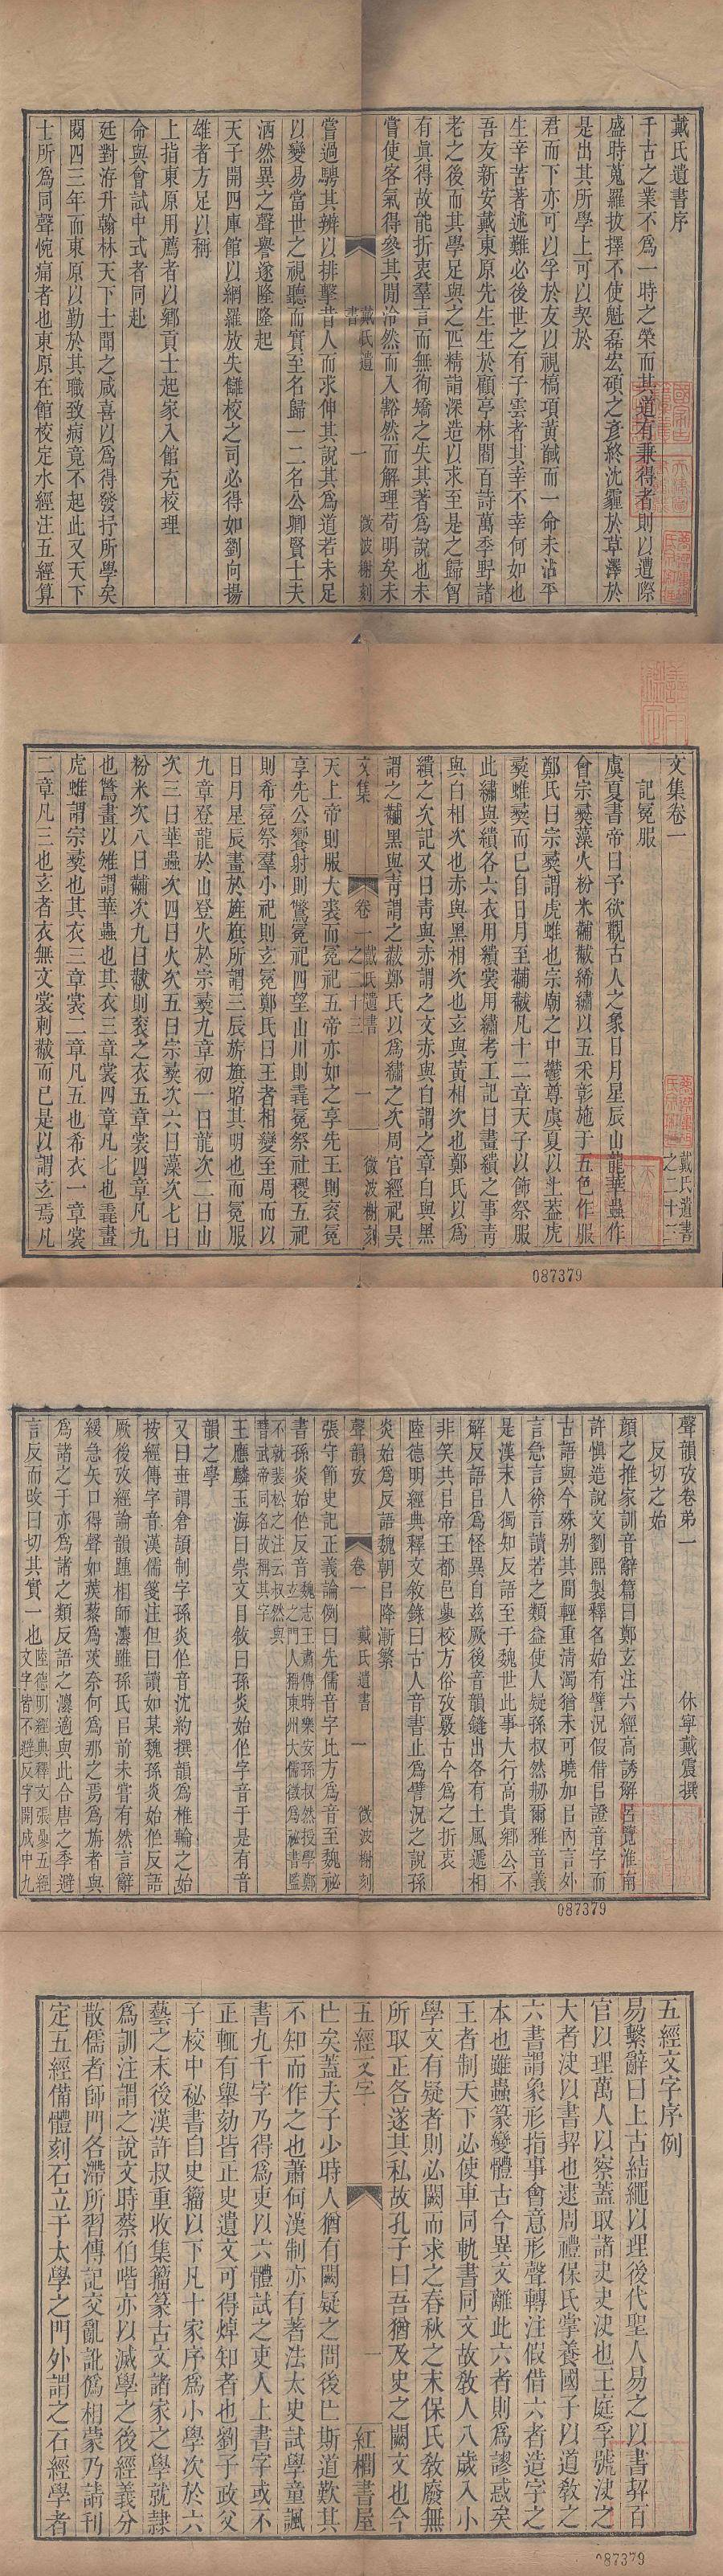 戴氏遺書序
千古之業不爲一時之榮而其道有兼得者則以遭際
盛時蒐羅拔擇不使魁磊宏碩之彥終沈霾於草澤於
是出其所學上可以契於
君而下亦可以孚於友以視槁項黃馘而一命未沾平
生辛苦著述難必後世之有子雲者其幸不幸何如也
吾友新安戴東原先生生於顧亭林閻百詩萬季野諸
老之後而其學足與之匹精詣深造以求至是之歸胷
有眞得故能折衷羣言而無徇矯之失其著爲說也未
嘗使客氣得參其閒泠然而入豁然而解理苟明矣未
戴氏遺書
一
微波榭刻
嘗過騁其辨以排擊昔人而求伸其說其爲道若未足
以變易當世之視聽而實至名歸一二名公卿賢士夫
洒然異之聲譽遂隆隆起
天子開四庫館以網羅放失讎校之司必得如劉向揚
雄者方足以稱
上指東原用薦者以鄉貢士起家入館充校理
命與會試中式者同赴
廷對洊升翰林天下士聞之咸喜以爲得發抒所學矣
閱四三年而東原以勤於其職致病竟不起此又天下
士所爲同聲惋痛者也東原在館校定水經注五經算
文集卷一
戴氏遺書之二十三
記冕服
虞夏書帝曰予欲觀古人之象日月星辰山龍華蟲作
會宗彝藻火粉米黼黻絺繡以五采彰施于五色作服
鄭氏曰宗彝謂虎蜼也宗廟之中鬱尊虞夏以上蓋虎
彝蜼彝而已自日月至黼黻凡十二章天子以飾祭服
此繡與繢各六衣用繢裳用繡考工記曰畫繢之事靑
與白相次也赤與黑相次也玄與黃相次也鄭氏以爲
繢之次記又曰靑與赤謂之文赤與白謂之章白與黑
謂之黼黑與靑謂之黻鄭氏以爲繡之次周官經祀昊
文集
卷一
戴氏遺書之二十三
一
微波榭刻
天上帝則服大裘而冕祀五帝亦如之享先王則袞冕
享先公饗射則鷩冕祀四望山川則毳冕祭社稷五祀
則希冕祭羣小祀則玄冕鄭氏曰王者相變至周而以
日月星辰畫於旌旗所謂三辰旂旗昭其明也而冕服
九章登龍於山登火於宗彝九章初一曰龍次二曰山
次三曰華蟲次四曰火次五曰宗彝次六曰藻次七曰
粉米次八曰黼次九曰黻則袞之衣五章裳四章凡九
也鷩畫以雉謂華蟲也其衣三章裳四章凡七也毳畫
虎蜼謂宗彝也其衣三章裳二章凡五也希衣一章裳
二章凡三也玄者衣無文裳刺黻而已是以謂玄焉凡
087379
聲韻攷卷弟一
休寧戴震撰
反切之始
顏之推家訓音辭篇曰鄭玄注六經高誘解呂覽淮南
許愼造說文劉熙製釋名始有譬況假借㠯證音字而
古語與今殊别其閒輕重清濁猶未可曉加㠯內言外
言急言徐言讀若之類益使人疑孫叔然剏爾雅音義
是漢末人獨知反語至于魏世此事大行高貴鄉公不
解反語㠯爲怪異自兹厥後音韻鋒出各有土風遞相
非笑共㠯帝王都邑參校方俗攷覈古今爲之折衷
陸德明經典釋文敘錄曰古人音書止爲譬況之說孫
炎始爲反語魏朝㠯降漸繁
聲韻攷
卷一
戴氏遺書
一
微波榭刻
張守節史記正義論例曰先儒音字比方爲音至魏祕
書孫炎始作反音魏志王肅傳時樂安孫叔然授學鄭玄之門人稱東州大儒徵爲祕書監不就裴松之注云叔然與晉武帝同名故稱其字
王應麟玉海曰崇文目敘曰孫炎始作字音于是有音
韻之學
又曰世謂倉頡制字孫炎作音沈約撰韻爲椎輪之始
按經傳字音漢儒箋注但曰讀如某魏孫炎始作反語
厥後攷經論韻踵相師灋雖孫氏㠯前未嘗有然言辭
緩急矢口得聲如蒺藜爲茨奈何爲那之焉爲旃者與
爲諸之于亦爲諸之類反語之灋適與此合唐之季避
言反而攺曰切其實一也陸德明經典釋文張參五經文字皆不避反字開成中九
087379
五經文字序例
易繫辭曰上古結繩以理後代聖人易之以書契百
官以理萬人以察蓋取諸夬夬決也王庭孚號決之
大者決以書契也逮周禮保氏掌養國子以道敎之
六書謂象形指事會意形聲轉注假借六者造字之
本也雖蟲篆變體古今異文離此六者則爲謬惑矣
王者制天下必使車同軌書同文故敎人八歲入小
學文有疑者則必闕而求之春秋之末保氏敎廢無
所取正各遂其私故孔子曰吾猶及史之闕文也今
五經文字
一
紅櫚書屋
亡矣蓋夫子少時人猶有闕疑之問後亡斯道歎其
不知而作之也蕭何漢制亦有著法太史試學童諷
書九千字乃得爲吏以六體試之吏人上書字或不
正輒有舉劾皆正史遺文可得焯知者也劉子政父
子校中秘書自史籀以下凡十家序爲小學次於六
藝之末後漢許叔重收集籀篆古文諸家之學就隸
爲訓注謂之說文時蔡伯喈亦以滅學之後經義分
散儒者師門各滯所習傳記交亂訛僞相蒙乃請刊
定五經備體刻石立于太學之門外謂之石經學者
087379